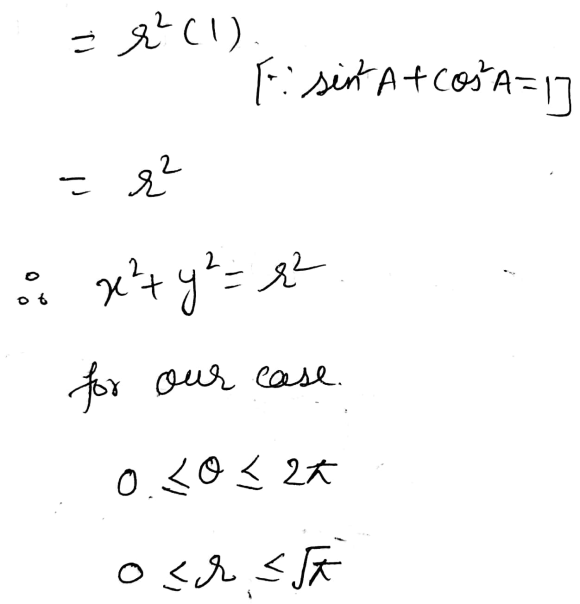 = r²(1).
[∵ sin²A + cos²A = 1]
= r²
∴ x² + y² = r²
for our case.
0 ≤ θ ≤ 2π
0 ≤ r ≤ √π